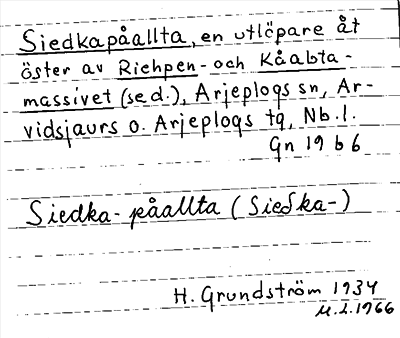 Siedkapåallta, en utlöpare åt
öster av Riehpen- och Kåabta-
massivet (se d.), Arjeplogs sn, Ar-
vidsjaurs o. Arjeplogs tg, Nb. l.
Gn 19 b 6
Siedka- påallta (Sieδka-)
H. Grundström 1934
M.L. 1966